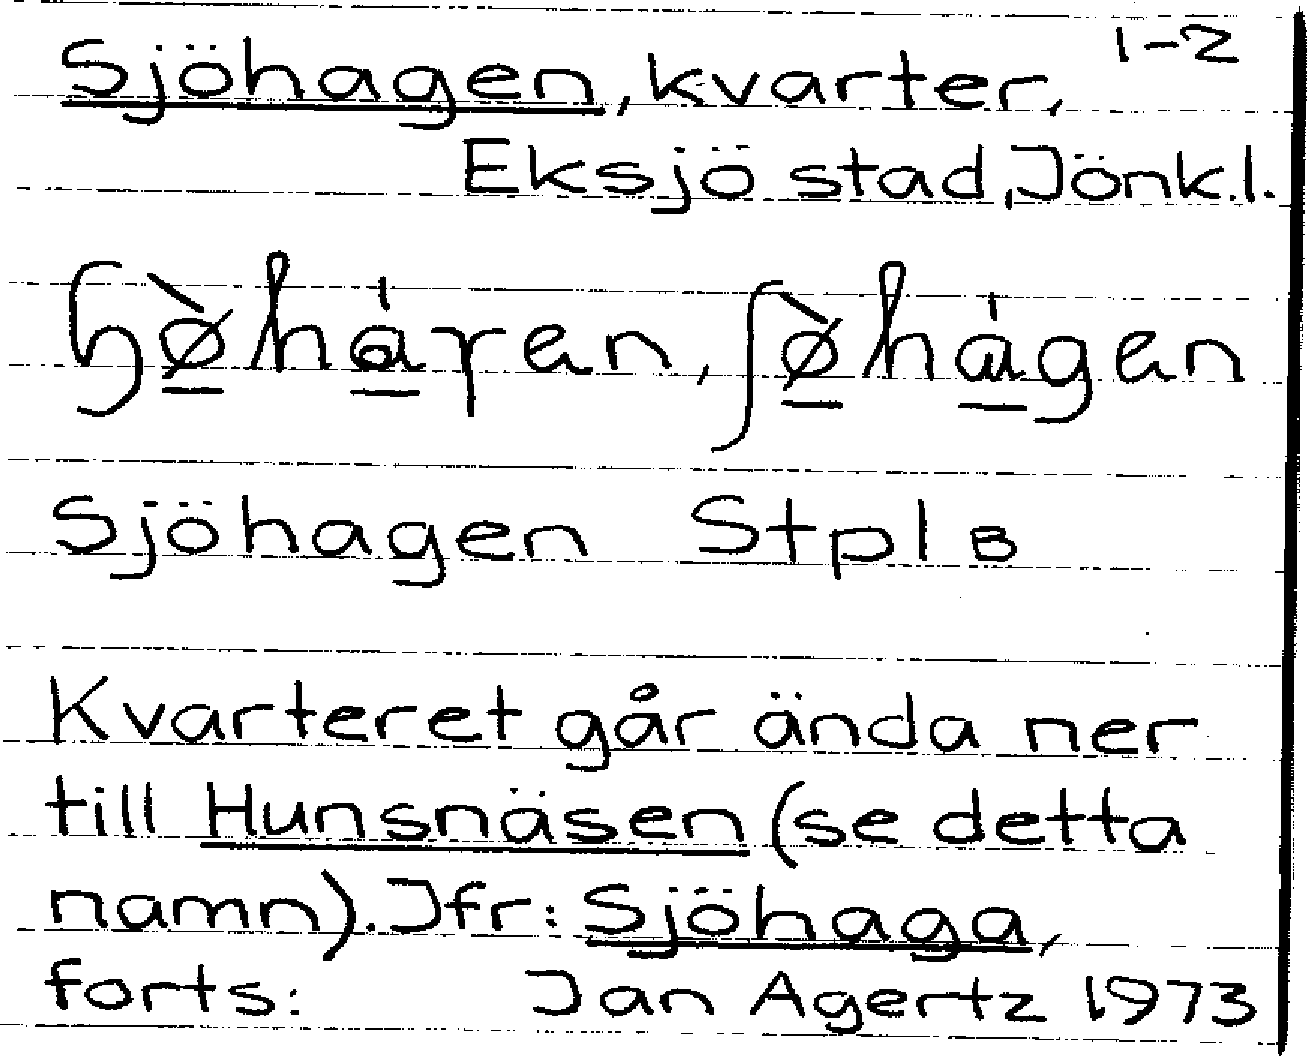 1-2
Sjöhagen, kvarter,
Eksjö stad, Jönk.l.
ɧø̠̀ha̠̍ɤen, ʃø̠̀ha̠̍gen
Sjöhagen Stpl B
Kvarteret går ända ner
till Hunsnäsen (se detta
namn). Jfr: Sjöhaga,
forts: Jan Agertz 1973